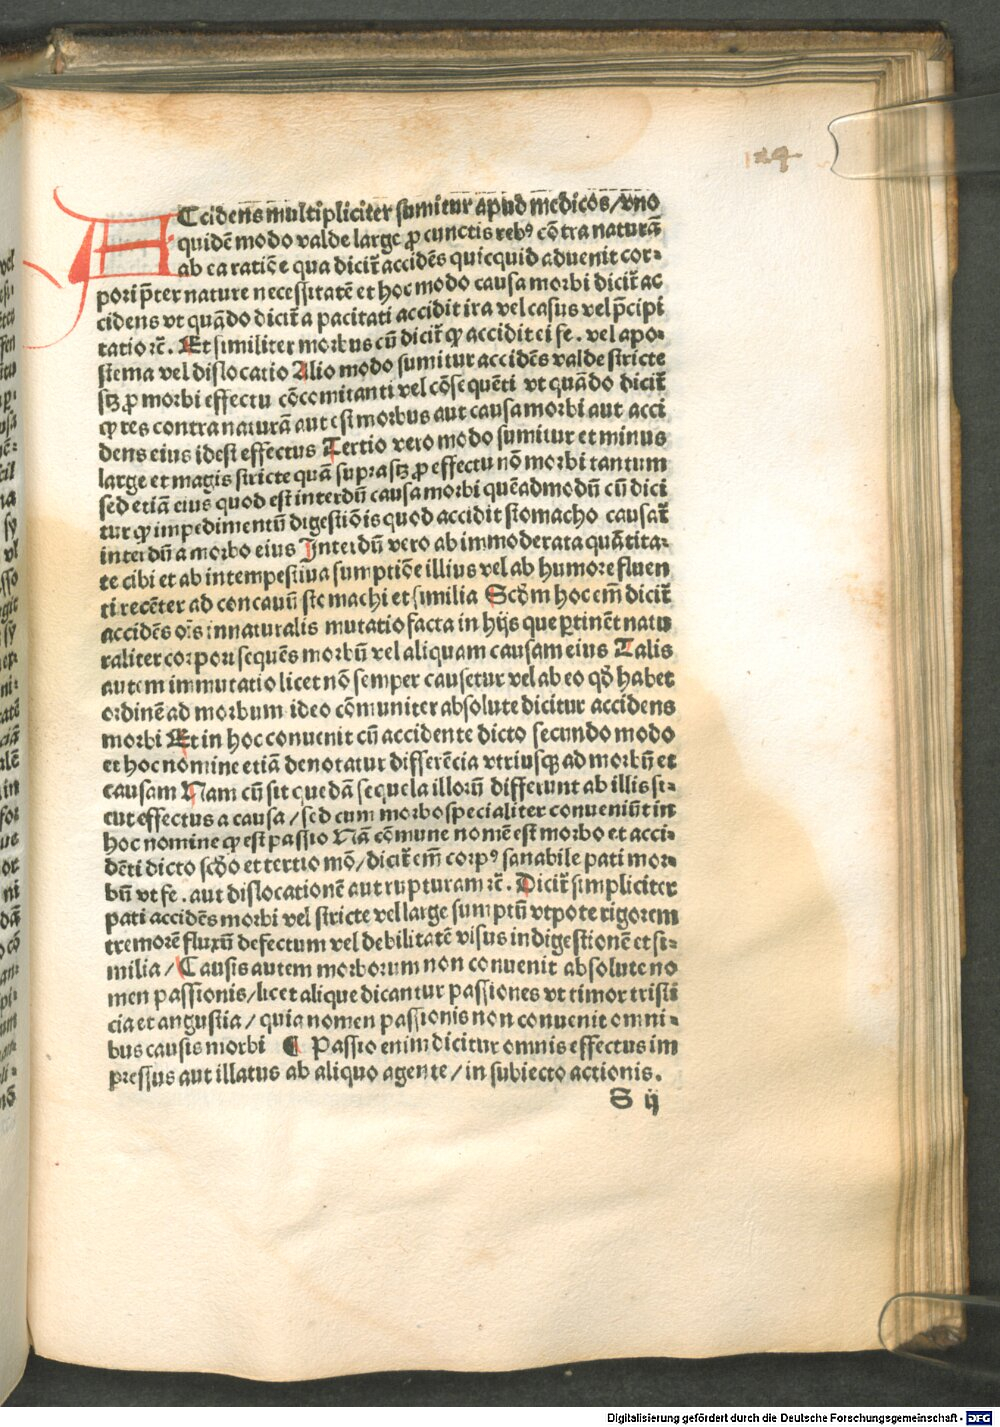 124
ACcidens multipliciter sumitur apud medicos/vno
quidē modo valde large ꝓ cunctis rebꝰ cōtra naturā
ab ea ratiōe qua dicit̄ accidēs quicquid aduenit cor⸗
pori p̄ter nature necessitatē et hoc modo causa morbi dicit̄ ac
cidens vt quādo dicit̄ a pacitati accidit ira vel casus vel p̄cipi
tatio ⁊c̄. Et similiter morbus cū dicit̄ ꝙ accidit ei fe. vel apo⸗
stema vel dislocatio Alio modo sumitur accidēs valde stricte
sꝫ ꝓ morbi effectu cōcomitanti vel cōsequēti vt quādo dicit̄
ꝙ res contra naturā aut est morbus aut causa morbi aut acci
dens eius idest effectus Tertio vero modo sumitur et minus
large et magis stricte quā supra sꝫ ꝓ effectu nō morbi tantum
sed etiā eius quod est interdū causa morbi quēadmodū cū dici
tur ꝙ impedimentū digestiōis quod accidit stomacho causat̄
interdū a morbo eius Interdū vero ab immoderata quātita⸗
te cibi et ab intempestiua sumptiōe illius vel ab humore fluen
ti recēter ad concauū stomachi et similia Scd̄m hoc em̄ dicit̄
accidēs oīs innaturalis mutatio facta in hijs que ꝑtinēt natu
raliter corpori sequēs morbū vel aliquam causam eius Talis
autem immutatio licet nō semper causetur vel ab eo qd̄ habet
ordinē ad morbum ideo cōmuniter absolute dicitur accidens
morbi Et in hoc conuenit cū accidente dicto secundo modo
et hoc nomine etiā denotatur differēcia vtriusqꝫ ad morbū et
causam Nam cū sit quedā sequela illorū differunt ab illis si⸗
cut effectus a causa/sed cum morbo specialiter conueniūt in
hoc nomine ꝙ est passio Nā cōmune nomē est morbo et acci⸗
dēti dicto scd̄o et tertio mō/dicit̄ em̄ corpꝰ sanabile pati mor⸗
bū vt fe. aut dislocationē aut rupturam ⁊c̄. Dicit̄ simpliciter
pati accidēs morbi vel stricte vel large sumptū vtpote rigorem
tremorē fluxū defectum vel debilitatē visus indigestionē et si⸗
milia/Causis autem morborum non conuenit absolute no
men passionis/licet alique dicantur passiones vt timor tristi
cia et angustia/quia nomen passionis non conuenit omni⸗
bus causis morbi ¶ Passio enim dicitur omnis effectus im
pressus aut illatus ab aliquo agente/in subiecto actionis.
S ij
Digitalisierung gefördert durch die Deutsche Forschungsgemeinschaft - DFG